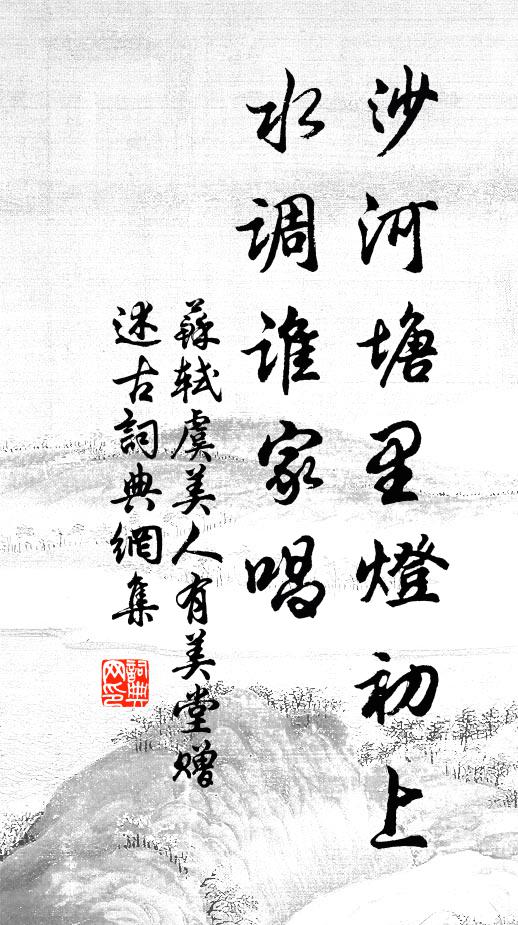 沙河塘里燈初上
水調誰家唱
蘇軾虞美人有美堂贈
述古詞典網集
詞典网印